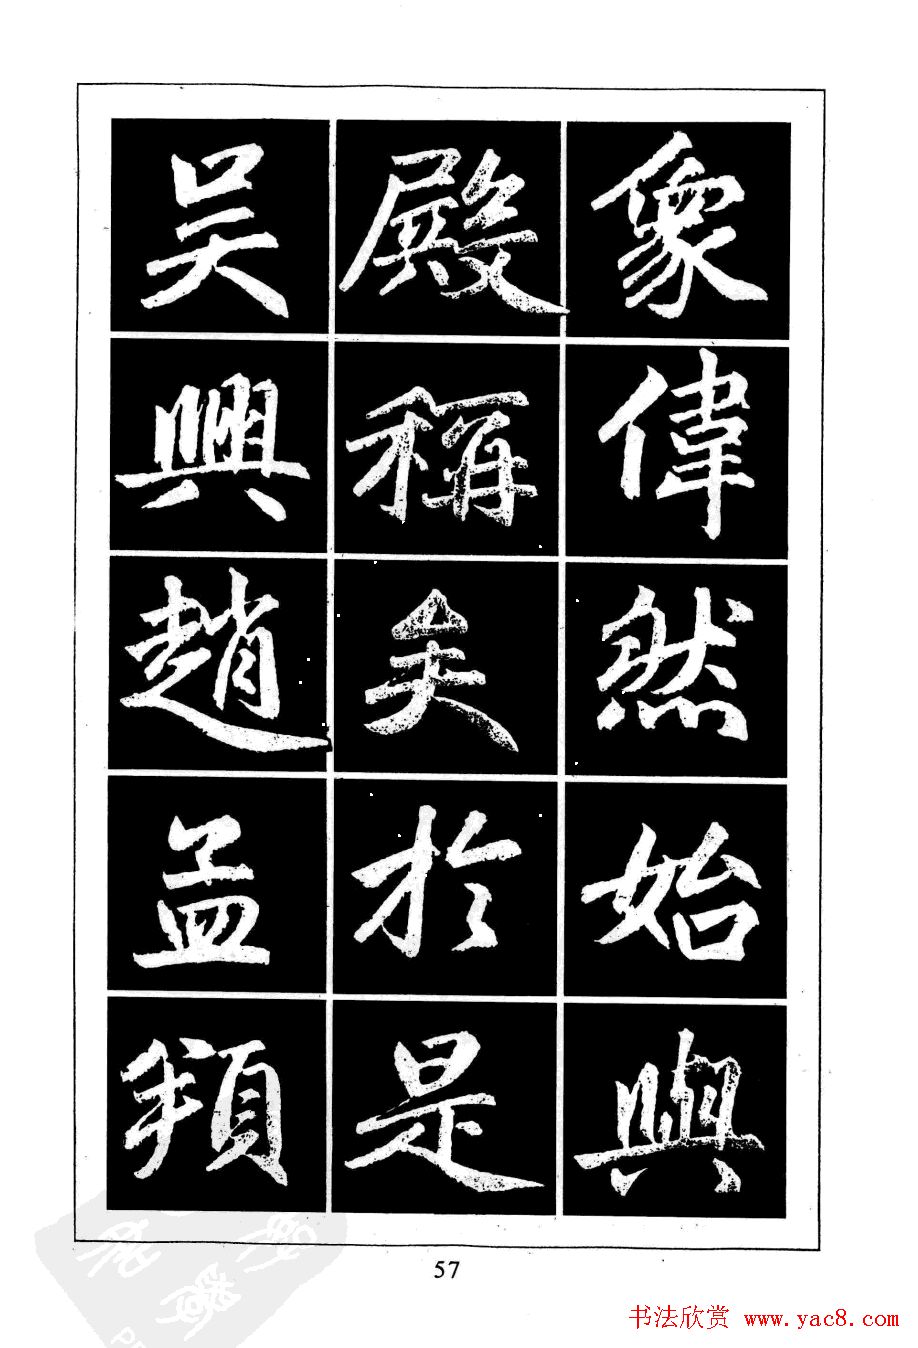 象偉然始與
殿稱矣於是
吳興趙孟頫
57
书法欣赏 www.yac8.com